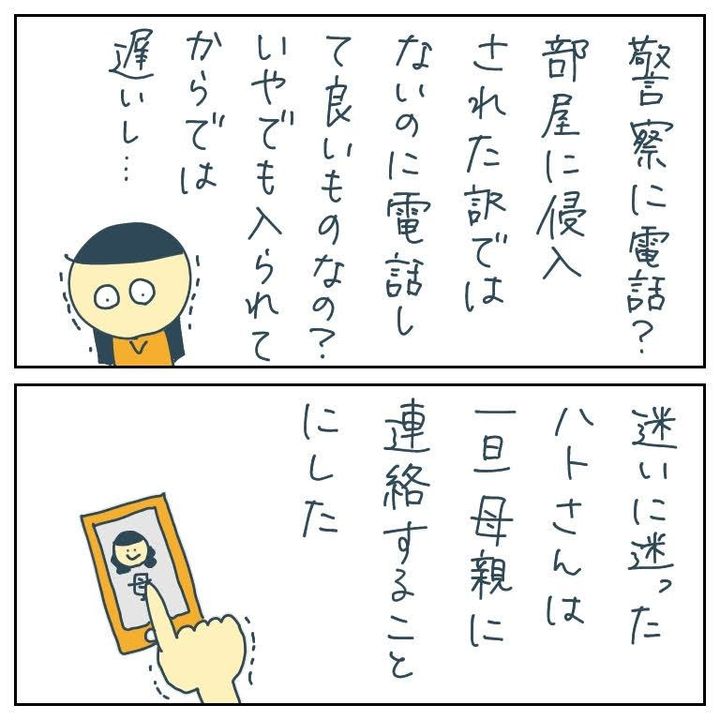 警察に電話？
部屋に侵入
された訳では
ないのに電話し
て良いものなの？
いやでも入られて
からでは
遅いし…
迷いに迷った
ハトさんは
一旦母親に
連絡すること
にした
母